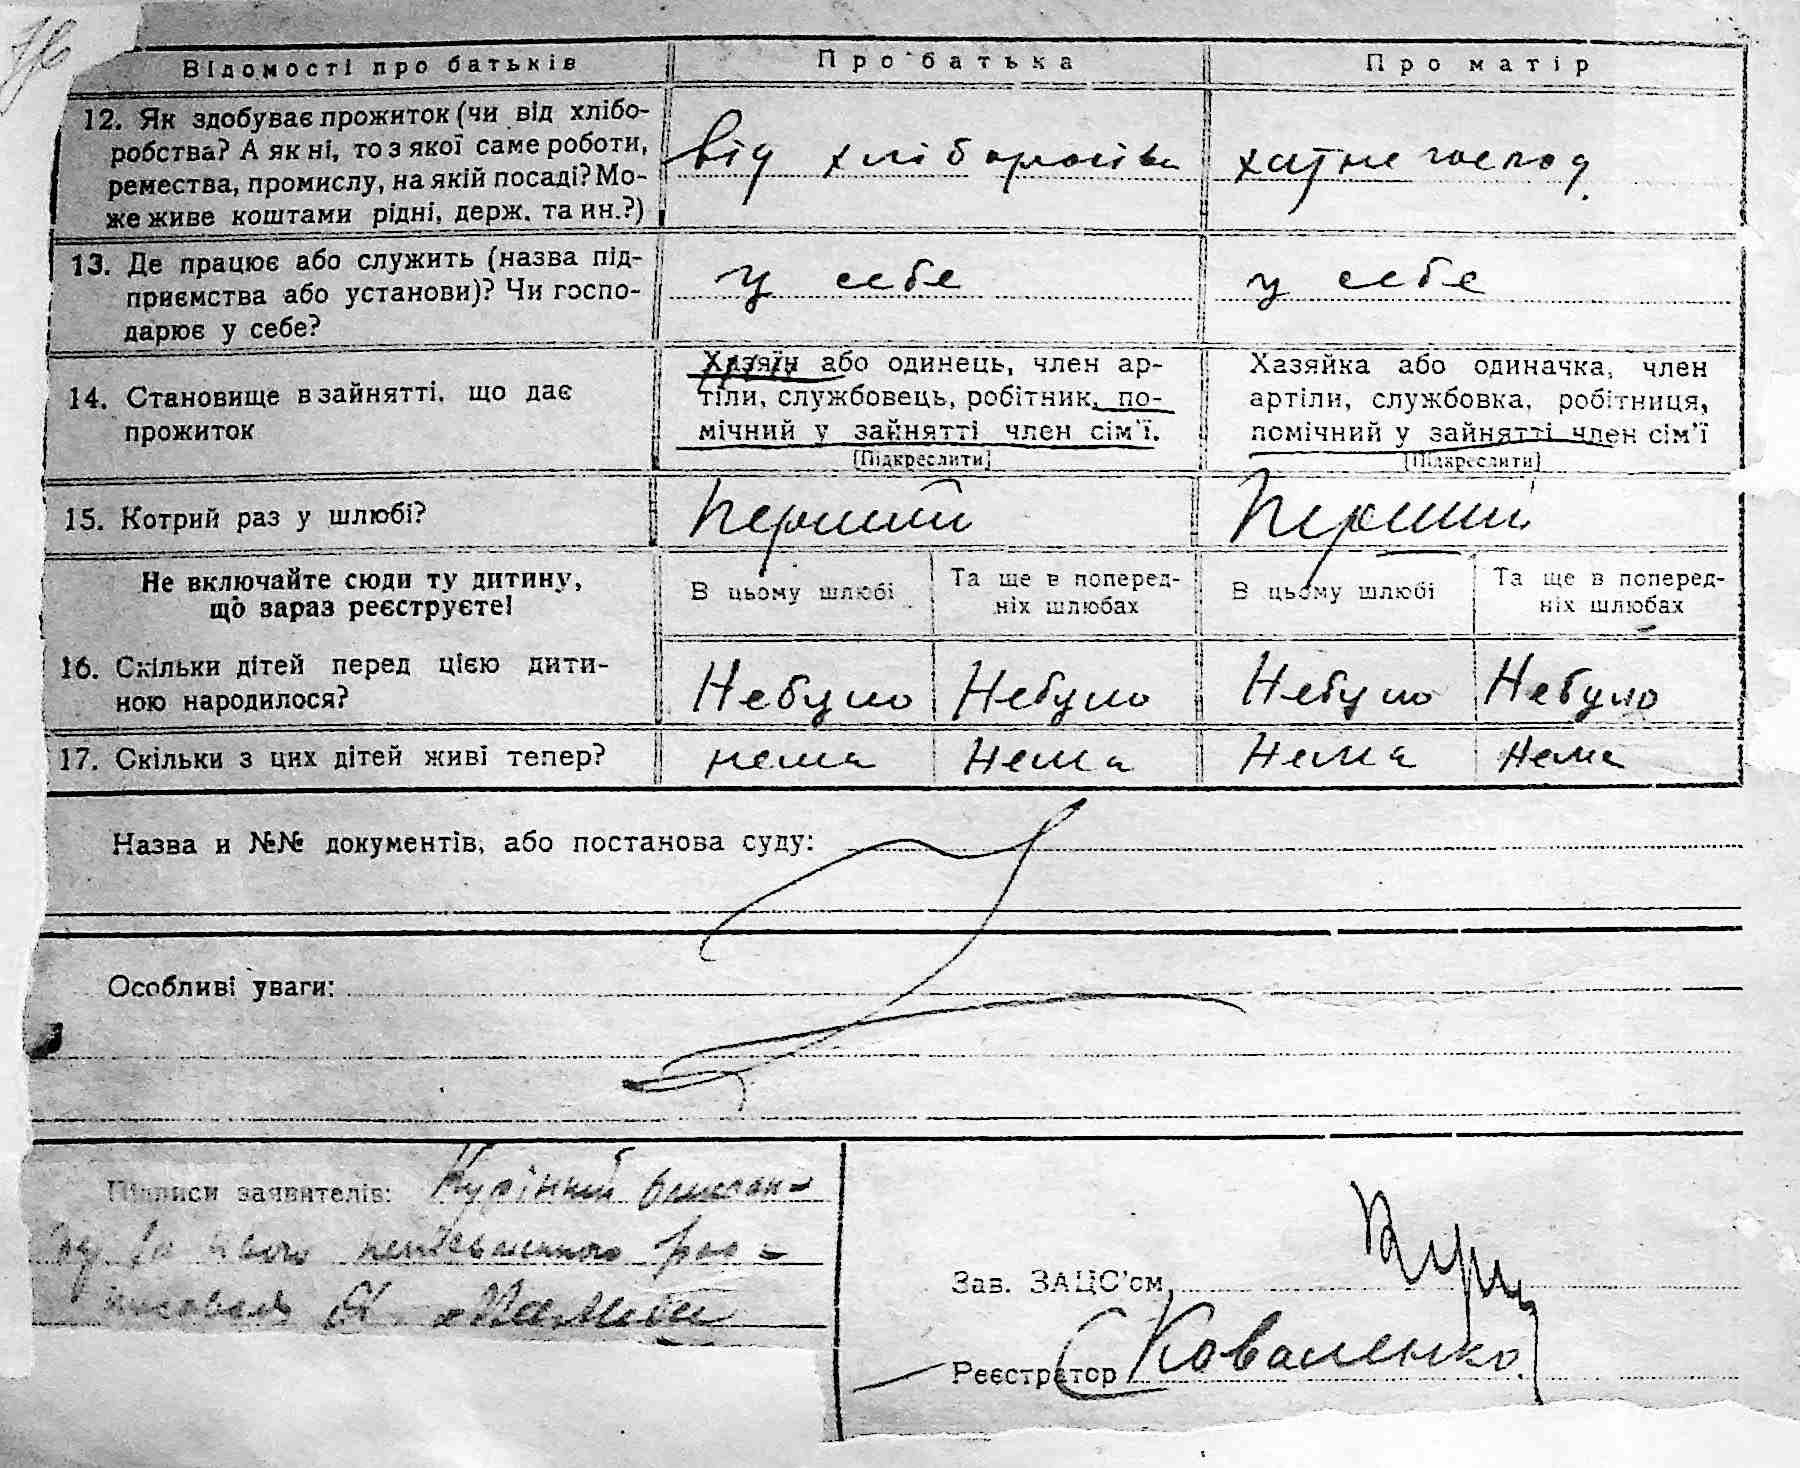 Відомості про батьків
Про батька
Про матір
12. Як здобуває прожиток (чи від хлібо-
робства? А як ні, то з якої саме роботи,
ремества, промислу, на якій посаді? Мо-
же живе коштами рідні, держ. та ин.?)
від хліборобства
хатнє господ.
13. Де працює або служить (назва під-
приємства або установи)? Чи госпо-
дарює у себе?
у себе
у себе
14. Становище в зайнятті, що дає
прожиток
Хазяїн або одинець, член ар-
тіли, службовець, робітник, по-
мічний у зайнятті член сім'ї.
[Підкреслити]
Хазяйка або одиначка, член
артіли, службовка, робітниця,
помічний у зайнятті член сім'ї
[Підкреслити]
15. Котрий раз у шлюбі?
Перший
Перший
Не включайте сюди ту дитину,
що зараз реєструєте!
В цьому шлюбі
Та ще в поперед-
ніх шлюбах
В цьому шлюбі
Та ще в поперед-
ніх шлюбах
16. Скільки дітей перед цією дити-
ною народилося?
Небуло
Небуло
Небуло
Небуло
17. Скільки з цих дітей живі тепер?
нема
Нема
Нема
Нема
Назва и №№ документів, або постанова суду:
Особливі уваги:
Підписи заявителів: Курінний
Зав. ЗАЦС'ом
Реєстратор С Коваленко